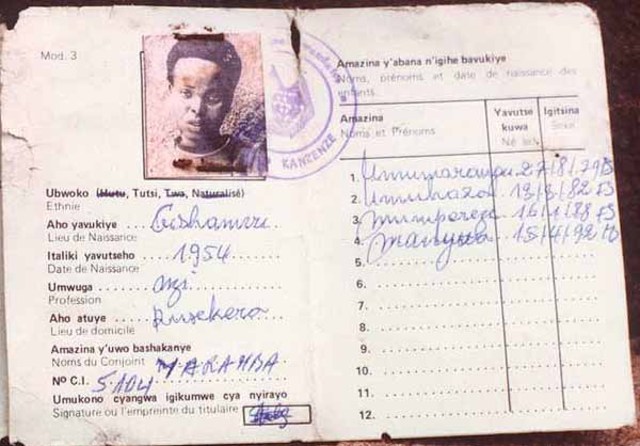 Mod. 3
KANZENZE
Ubwoko (Hutu, Tutsi, Twa, Naturalisé)
Ethnie
Aho yavukiye Gishamvu
Lieu de Naissance
Italiki yavutseho 1954
Date de Naissance
Umwuga
Profession
Aho atuye
Lieu de domicile
Amazina y'uwo bashakanye
Noms du Conjoint MARAMBA
N° C.I. 5104
Umukono cyangwa igikumwe cya nyirayo
Signature ou l'empreinte du titulaire
Amazina y'abana n'igihe bavukiye
Noms, prénoms et date de naissance des
enfants
Amazina
Noms et Prénoms
Yavutse
kuwa
Né le
Igitsina
Sexe
1.
2. 13/8/82
3. 16/1/88
4. 15/4/92
5.
6.
7.
8.
9.
10.
11.
12.